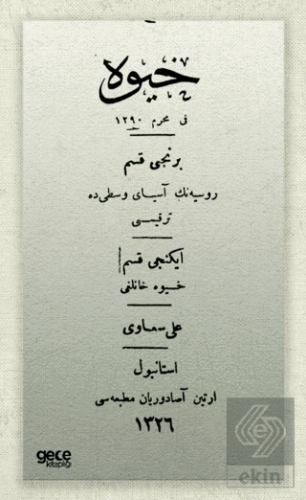 خیوه
فی محرم ١٢٩٠
برنجی قسم
روسیه‌نك آسیای وسطی‌ده
ترقیسی
ایكنجی قسم
خیوه خانلغی
علی سعاوی
استانبول
ارتین آصادوریان مطبعه‌سی
١٣٢٦
gece
kitaplığı
ekin